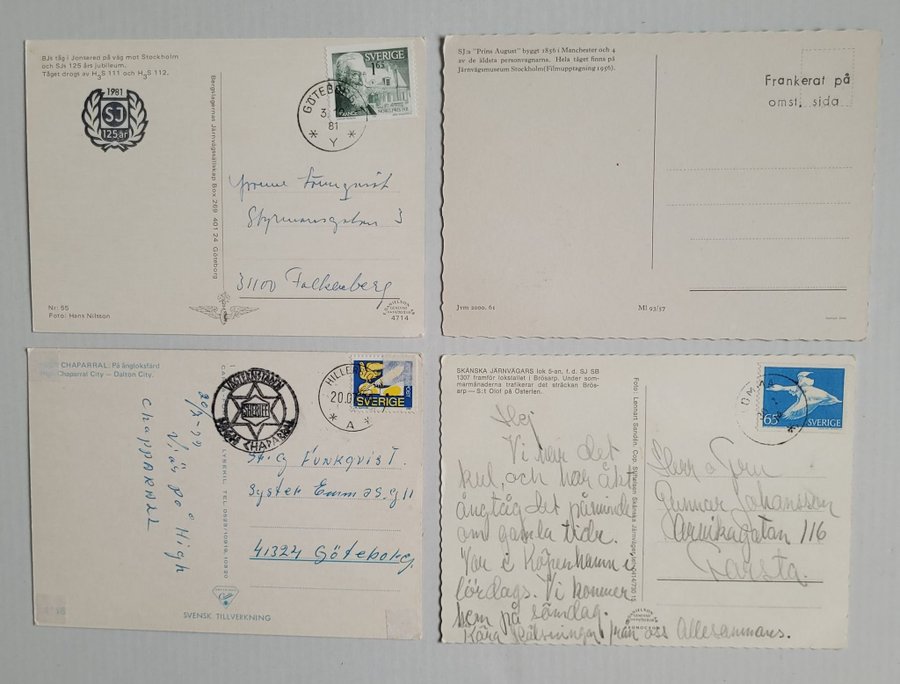 BJs tåg i Jonsered på väg mot Stockholm
och SJs 125 års jubileum.
Tåget drogs av H3S 111 och H3S 112.
1981
SJ
125 år
Bergslagernas Järnvägssällskap Box 269 401 24 Göteborg
SVERIGE
165
GÖTEBO
3.
81
Y
Yvonne
Styrmansgatan 3
31100 Falkenberg
Nr: 55
Foto: Hans Nilsson
4714
SJ:s "Prins August" byggt 1856 i Manchester och 4
av de äldsta personvagnarna. Hela tåget finns på
Järnvägsmuseum Stockholm(Filmupptagning 1956).
Frankerat på
omst. sida
Jvm 2000. 61
Ml 93/57
CHAPARRAL: På ångloksfärd
Chaparral City — Dalton City.
SHERIFF
HIGH CHAPARRAL
HILLE
20.0
A
SVERIGE
20/7-77
Vi är på High
ChapparALL
Stig Funkqvist.
Syster Emmas G. 11
41324 Göteborg
SVENSK TILLVERKNING
SKÅNSKA JÄRNVÄGARS lok 5-an, f. d. SJ SB
1307 framför lokstallet i Brösarp. Under som-
marmånaderna trafikerat det sträckan Brös-
arp — S:t Olof på Österlen.
Foto: Lennart Sandén. Cop. Stiftelsen Skånska Järnvägar
65
SVERIGE
Hej
Vi har det
kul, och har åkt
ångtåg det påminde
om gamla tider.
Var i Köpenhamn i
lördags. Vi kommer
hem på söndag.
Kära hälsningar från oss Allesammans.
Herr o Fru
Gunnar Johansson
Arvikagatan 116
Farsta.